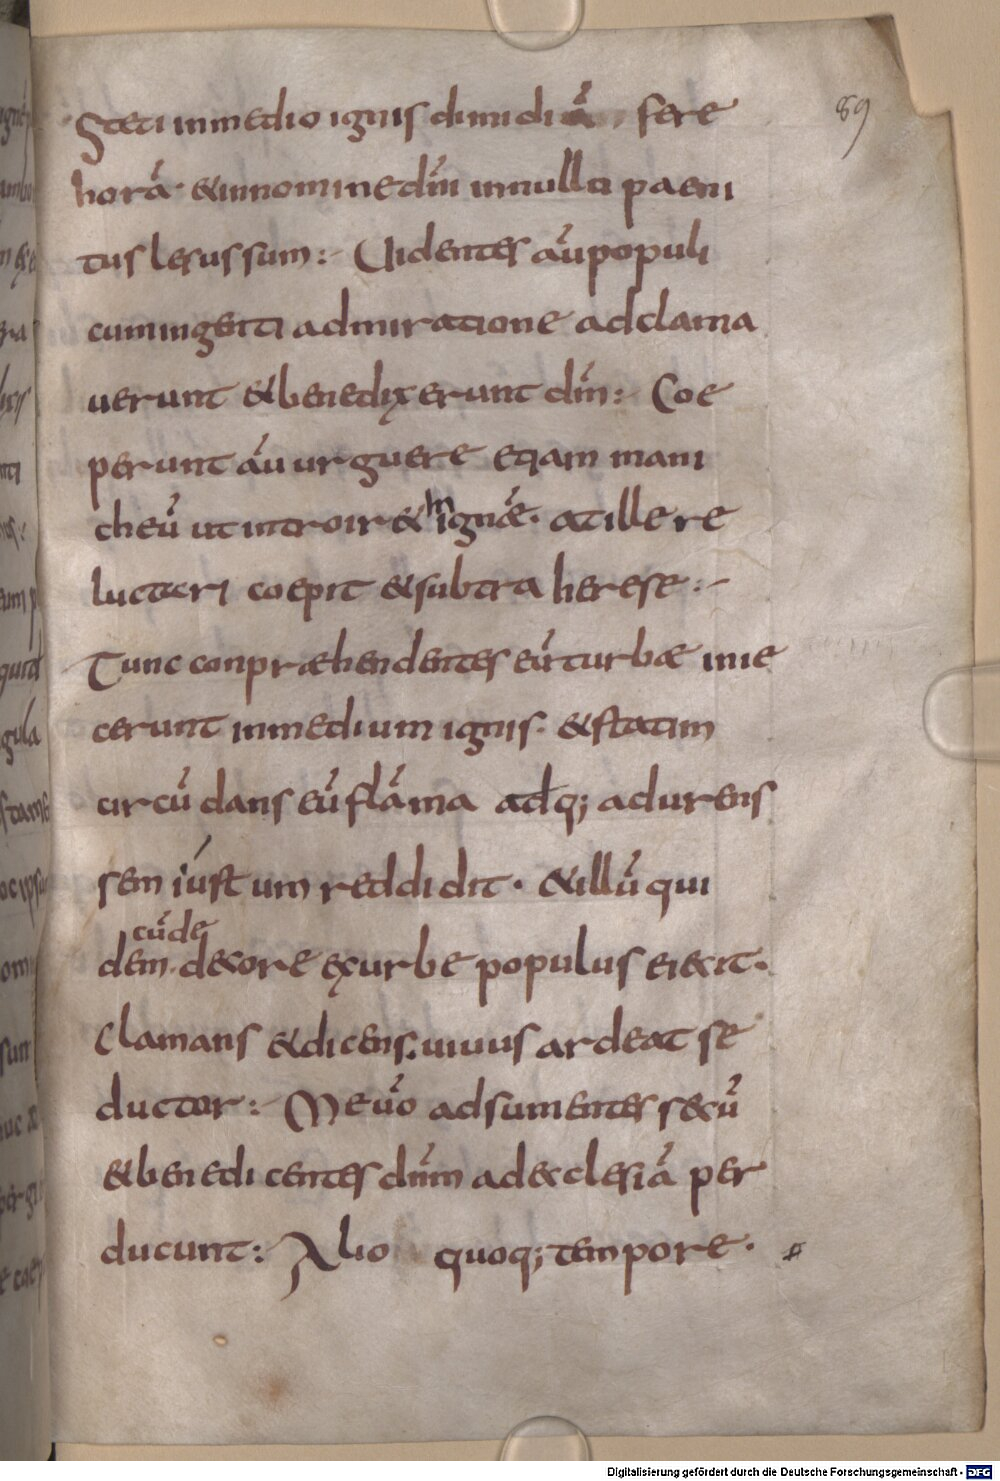 89
Steti in medio ignis dimidiā fere
horā. & in nomine dn̄i in nullo paeni
tus lesus sum:- Uidentes aū populi
cum ingenti admiratione adclama
uerunt & benedixerunt dn̄m:- Coe
perunt aū urguere etiam mani
cheū ut introir& in ignē. at ille re
luctari coepit & subtrahere se:-
Tunc conpræhendentes eū turbæ inie
cerunt in medium ignis. & statim
circūdans eū flāma adq; adurens
semiustum reddidit. & illū qui
cūde
dem. decore ex urbe populus eiecit.
Clamans & dicens. uiuus ardeat se
ductor:- Me uº adsumentes secū
& benedicentes dn̄m ad ecclesiā per
ducunt:- Alio quoq; tempore.
Digitalisierung gefördert durch die Deutsche Forschungsgemeinschaft - DFG